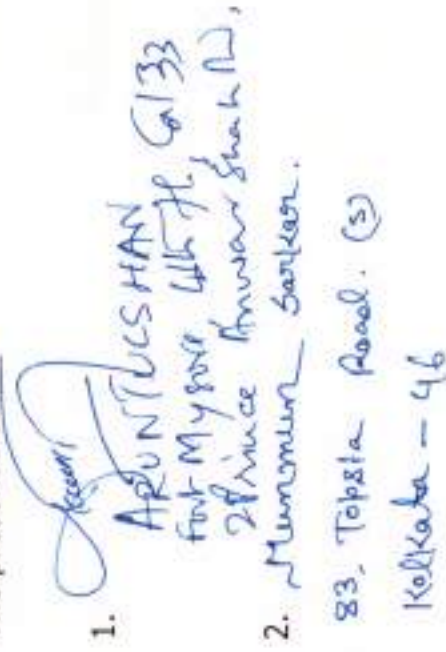 1.
ARUN TULSHAN
Fort Mysore 4th Fl. Cal 33
2 Prince Anwar Shah Rd,
2. Munmun Sarkar.
83, Topsia Road. (S)
Kolkata - 46